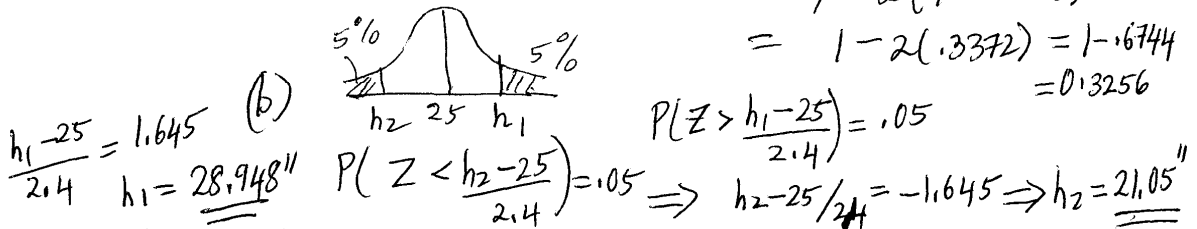 = 1 - 2(.3372) = 1 - .6744
= 0.3256
(b)
5% 5%
h2 25 h1
P(Z > h1-25/2.4) = .05
h1-25/2.4 = 1.645
h1 = 28.948"
P(Z < h2-25/2.4) = .05 ⟹ h2-25/24 = -1.645 ⟹ h2 = 21.05"